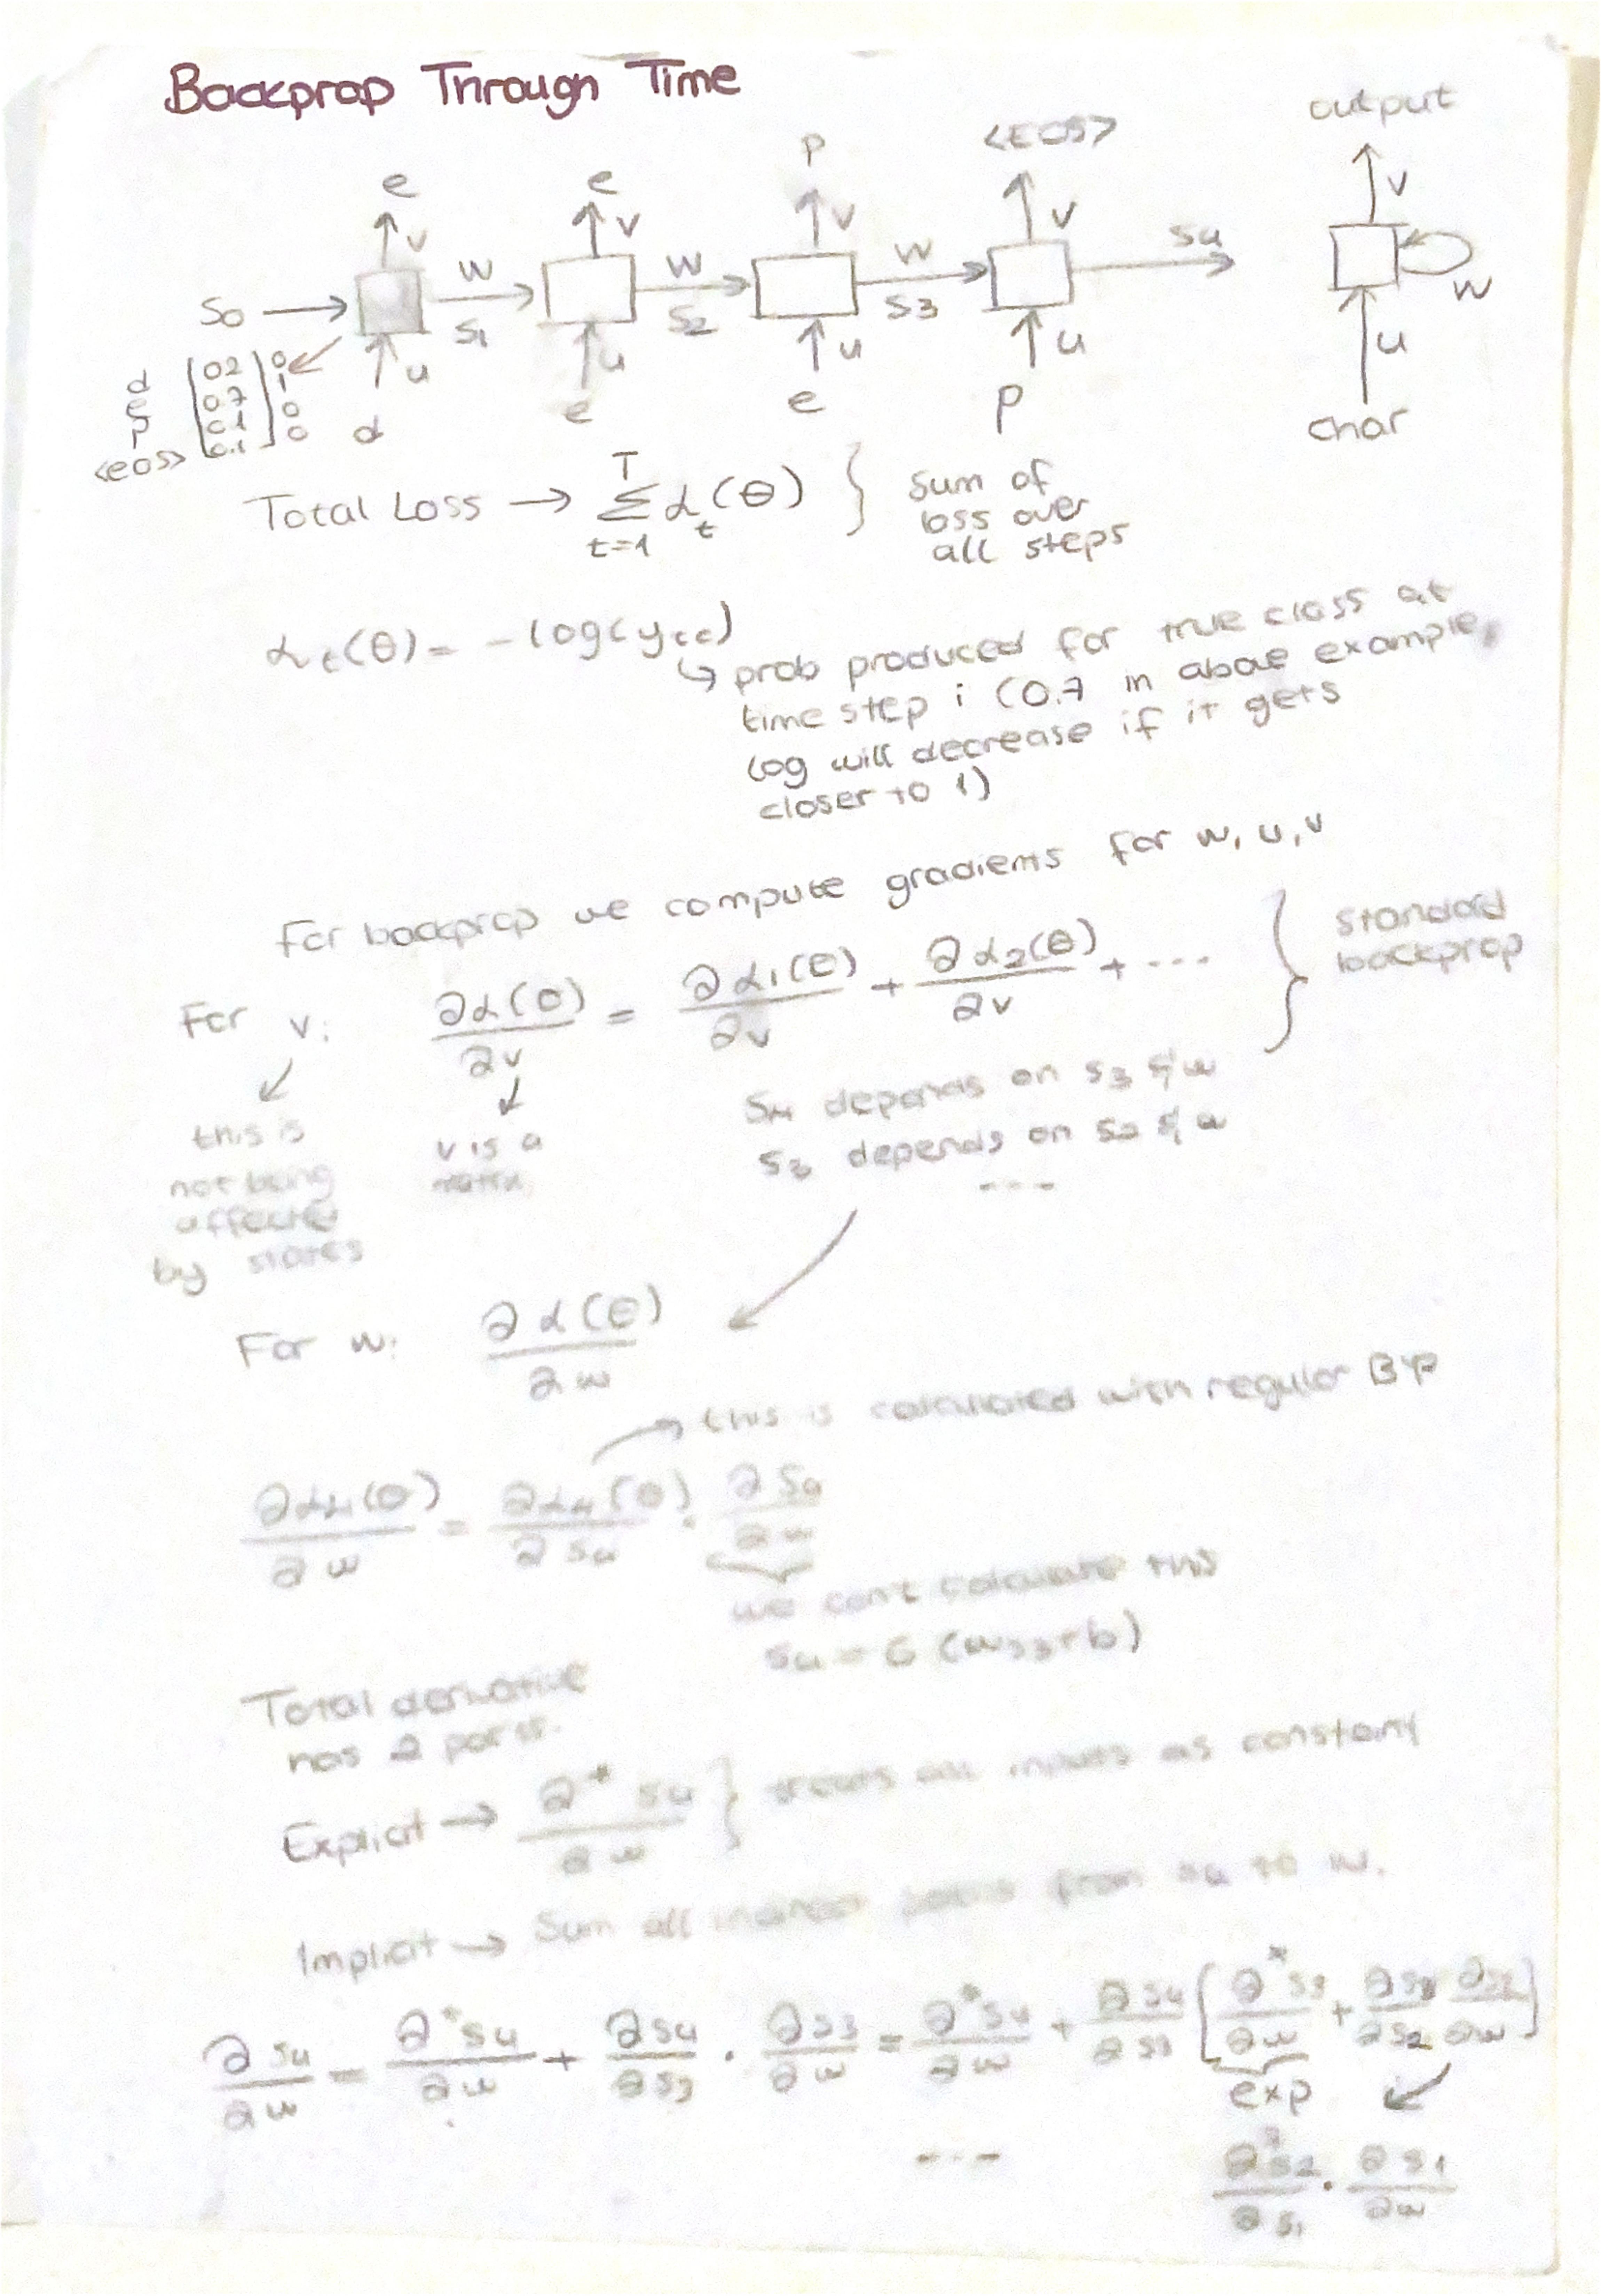 Backprop Through Time
e e P <EOS> output
v v v v v
S0 w w w S4
S1 S2 S3 w
u u u u u
d e e P char
d [0.2] 0
e [0.7] 1
p [0.1] 0
<eos> [0.1] 0
Total Loss → Σ_{t=1}^{T} ℒ_t(θ) } sum of
loss over
all steps
ℒ_t(θ) = - log(y_tc)
↳ prob produced for true class at
time step i (0.7 in above example,
log will decrease if it gets
closer to 1)
For backprop we compute gradients for w, u, v
For v: ∂ℒ(θ)/∂v = ∂ℒ1(θ)/∂v + ∂ℒ2(θ)/∂v + ... } standard
backprop
this is
not being
affected
by states
v is a
matrix
S4 depends on S3 & w
S3 depends on S2 & w
---
For w: ∂ℒ(θ)/∂w
this is calculated with regular BP
∂ℒ4(θ)/∂w = ∂ℒ4(θ)/∂S4 · ∂S4/∂w
we can't calculate this
S4 = σ(wS3+b)
Total derivative
has 2 parts.
Explicit → ∂*S4/∂w } treats all inputs as constant
Implicit → Sum all indirect paths from S4 to w.
∂S4/∂w = ∂*S4/∂w + ∂S4/∂S3 · ∂S3/∂w = ∂*S4/∂w + ∂S4/∂S3 [∂*S3/∂w + ∂S3/∂S2 ∂S2/∂w]
exp
--- ∂*S2/∂S1 · ∂S1/∂w